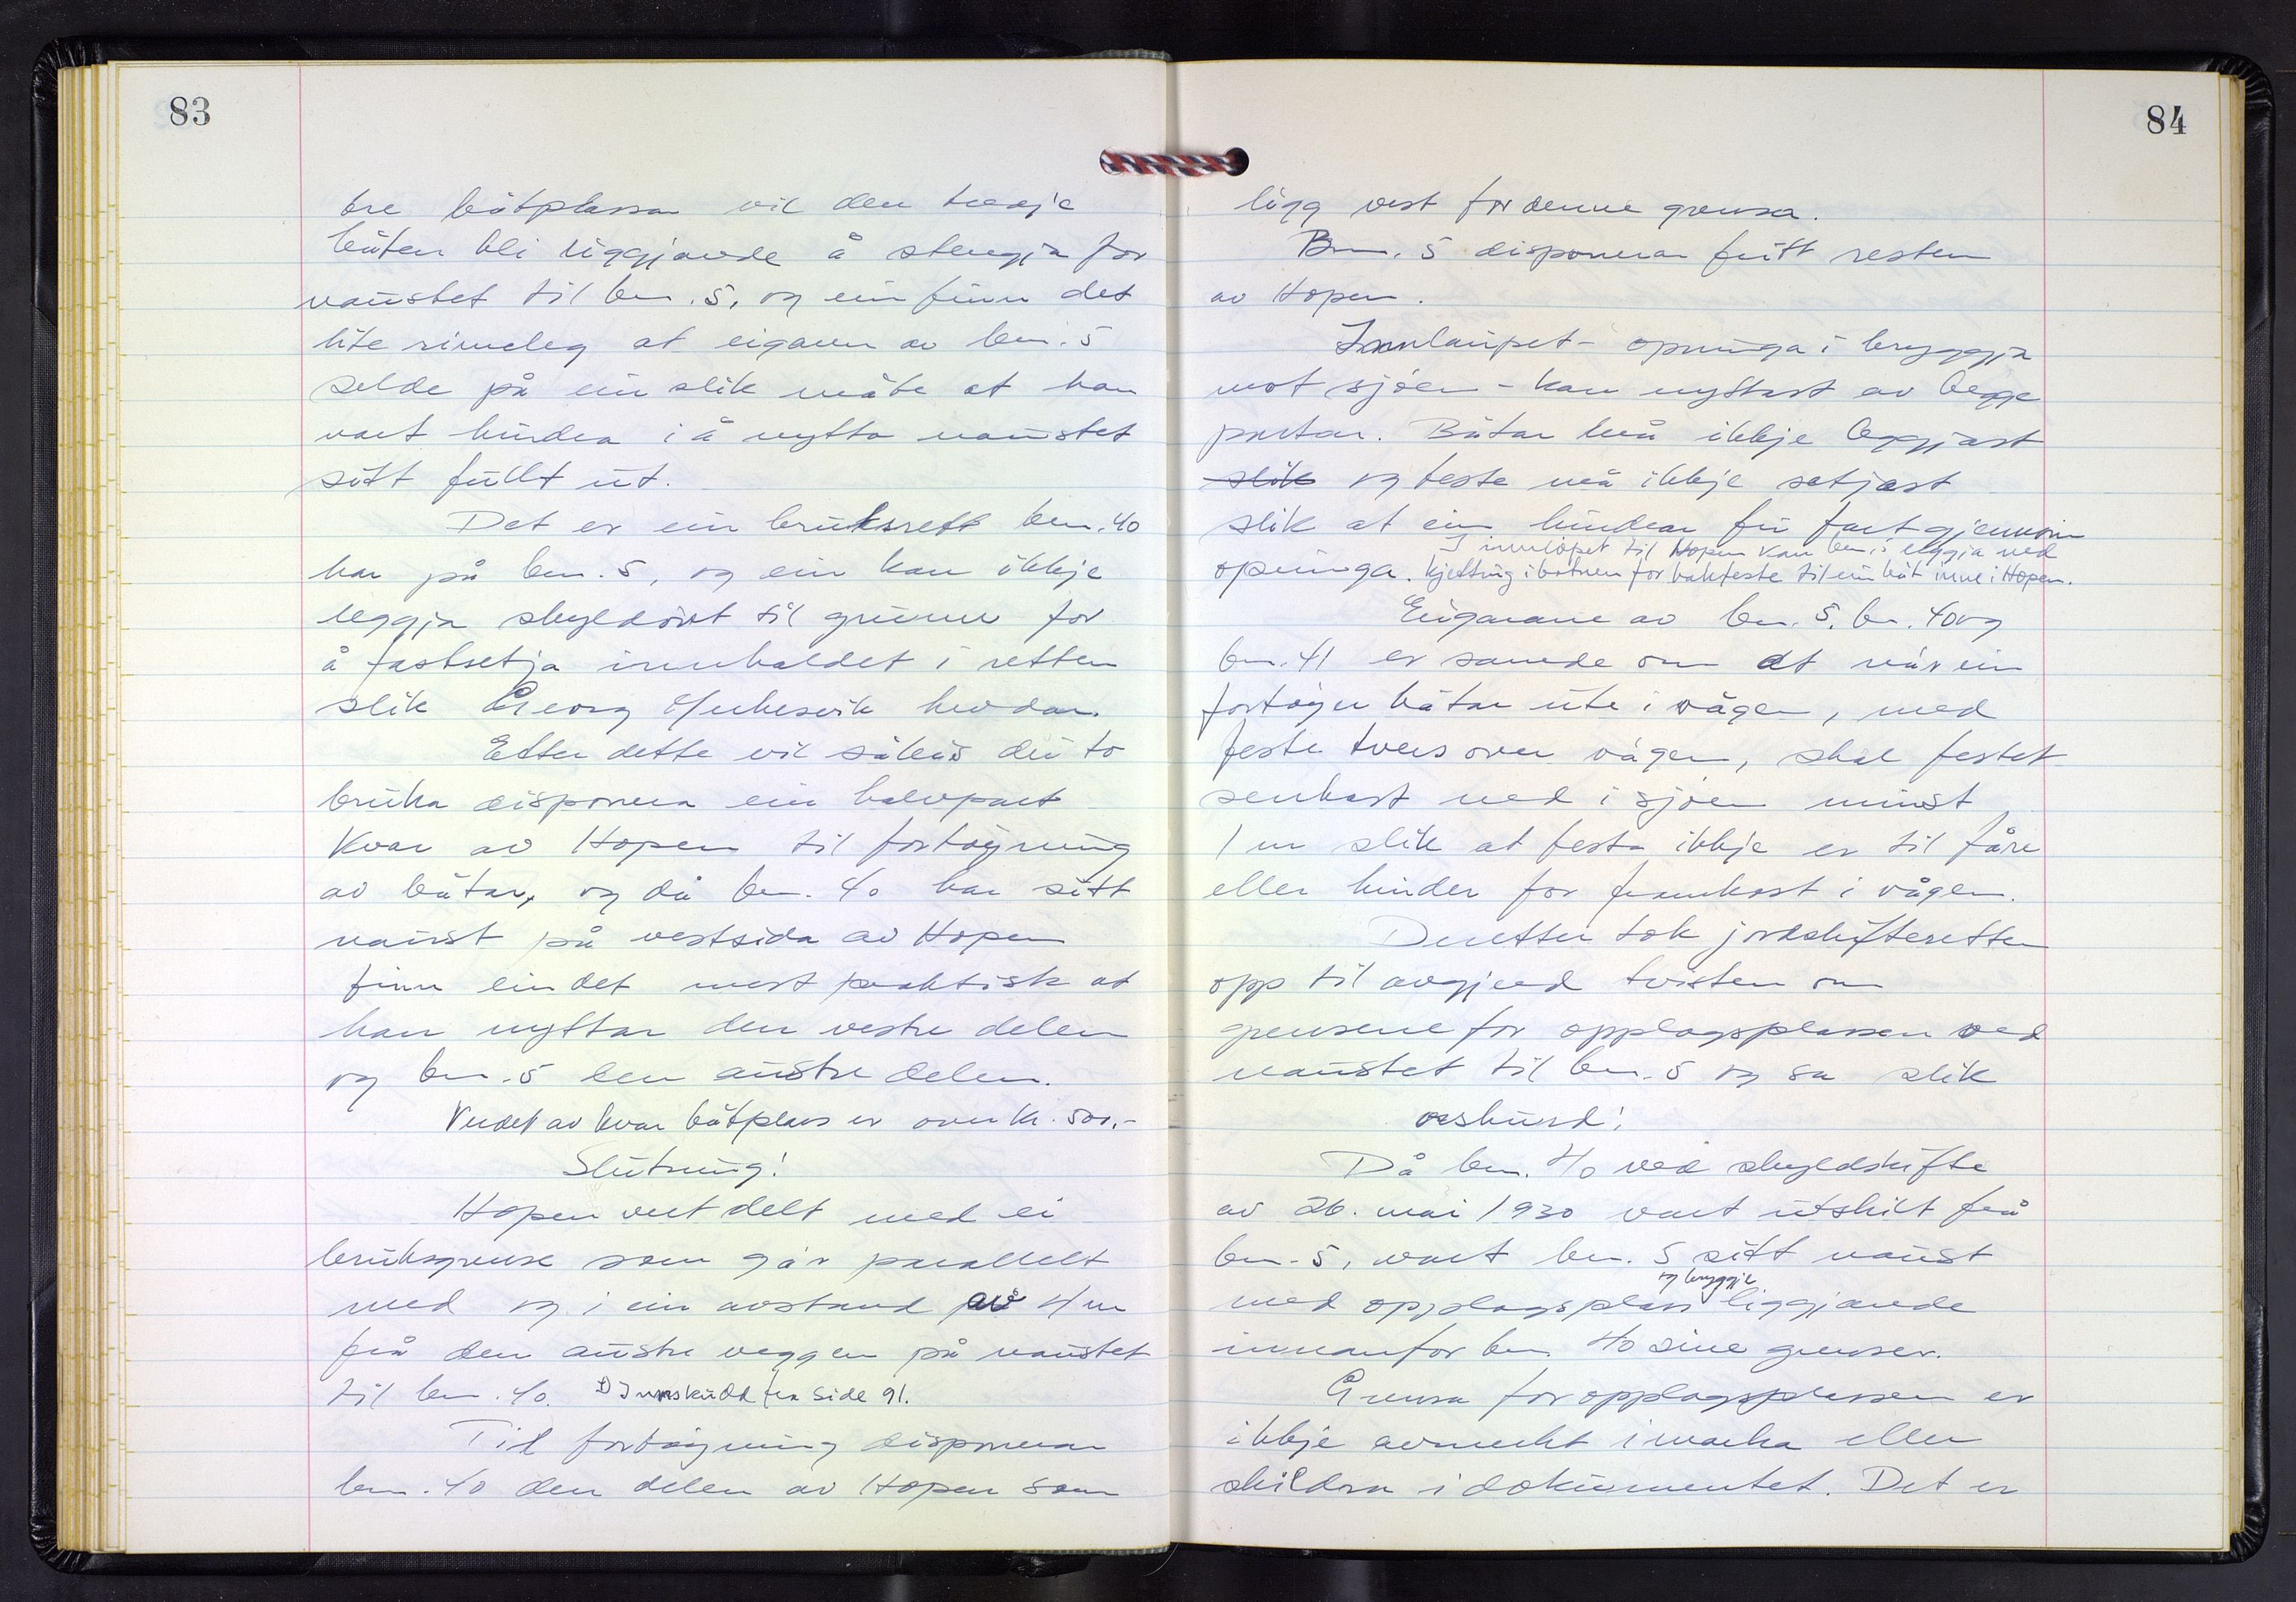 83
tre båtplassar vil den tredje
båten bli liggjande å stengja for
naustet til bnr. 5, og ein finn det
lite rimeleg at eigaren av bnr. 5
selde på ein slik måte at han
vart hindra i å nytta naustet
sitt fullt ut.
Det er ein bruksrett bnr. 40
har på bnr. 5, og ein kan ikkje
leggja skyldøvt til grunn for
å fastsetja innhaldet i retten
slik Georg hevdar.
Etter dette vil såleis dei to
bruka disponera ein halvpart
kvar av Hopen til fortøyning
av båtar, og då bnr. 40 har sitt
naust på vestsida av Hopen
finn ein det mest praktisk at
han nyttar den vestre delen
og bnr. 5 den austre delen.
Verdet av kvar båtplass er over kr. 500,-
Slutning!
Hopen vert delt med ei
bruksgrense som går parallelt
med og i ein avstand av 4 m
frå den austre veggen på naustet
til bnr. 40. 1) Innskudd fra side 91.
Til fortøyning disponerar
bnr. 40 den delen av Hopen som
84
ligg vest for denne grensa.
Bnr. 5 disponerar fritt resten
av Hopen.
Innlaupet - opninga i bryggja
mot sjøen - kan nyttast av begge
partar. Båtar må ikkje leggjast
slik og feste må ikkje setjast
slik at ein hindrar fri fart gjennom
I innløpet til Hopen kan bnr. 5 leggja ned
opninga. kjetting i botnen for bakfeste til ein båt inne i Hopen.
Eigarane av bnr. 5, br. 40 og
bnr. 41 er samde om at når ein
fortøyer båtar ute i vågen, med
feste tvers over vågen, skal festet
senkast ned i sjøen minst
1 m slik at festa ikkje er til fåre
eller hinder for framkost i vågen.
Deretter tok jordskifteretten
opp til avgjerd tvisten om
grensene for opplagsplassen ved
naustet til bnr. 5 og sa slik
orskurd!
Då bnr. 40 ved skyldskifte
av 26. mai 1930 vart utskilt frå
bnr. 5, vart bnr. 5 sitt naust
og bryggje
med opplagsplass liggjande
innanfor bnr. 40 sine grenser.
Grensa for opplagsplassen er
ikkje avmerkt i marka eller
skildra i dokumentet. Det er